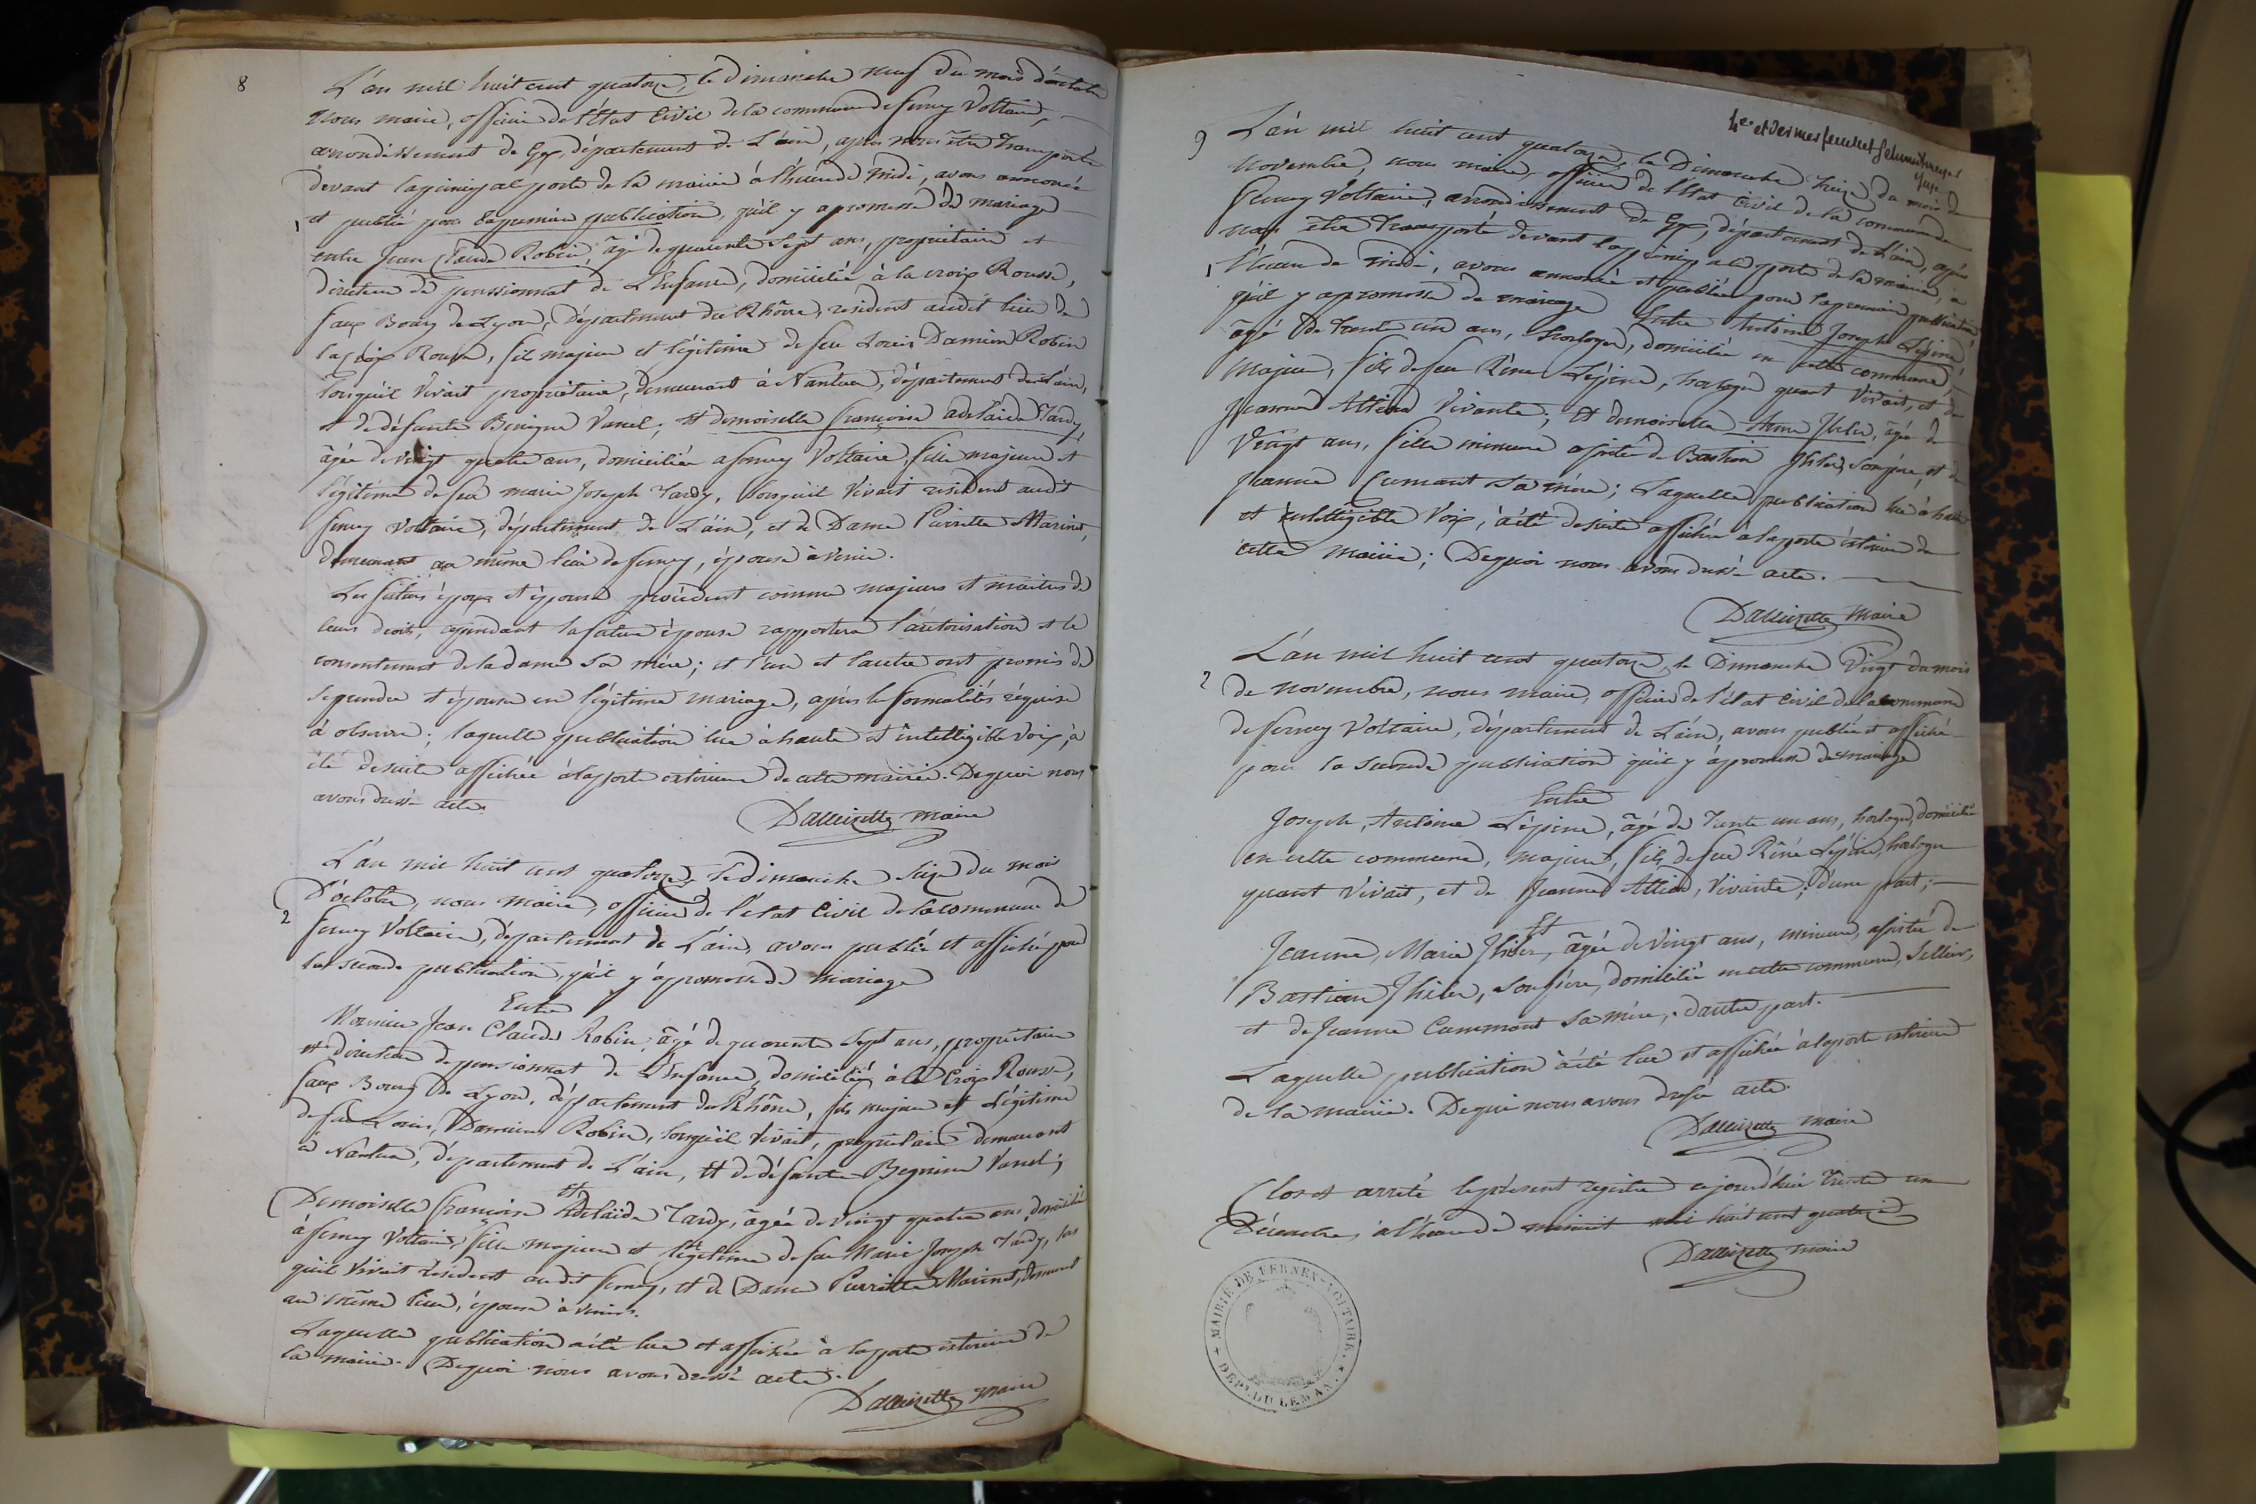 8
L'an mil huit cent quatorze, le Dimanche neuf du mois d'octobre
Nous maire, officier de l'état Civil de la commune de ferney Voltaire,
arrondissement de Gex, département de L'ain, après nous être transporté
devant la principale porte de la mairie à l'heure de midi, avons annoncé
1 et publié pour la première publication, qu'il y a promesse de mariage
entre Jean Claude Robin, âgé de quarente sept ans, propriétaire et
directeur de penssionnat de L'Enfance, domicilié à la croix Rousse,
faux Bourg de Lyon, département du Rhône, résident audit lieu de
la croix Rousse, fils majeur et légitime de feu Louis Damien Robin
lorsqu'il vivait propriétaire, demeurant à Nantua, département de l'ain,
et de défunte Benigne Vanel; et demoiselle françoise adelaide Tardy,
âgée de vingt quatre ans, domiciliée a ferney Voltaire, fille majeure et
légitime de feu marie Joseph Tardy, lorsqu'il Vivait résident audit
ferney Voltaire, département de L'ain, et de Dame Pierrette Marinet,
demeurant au même lieu de ferney, épouse à venir.
Les futurs époux et épouse procèdent comme majeurs et maitres de
leurs droits, cependant la future épouse rapportera l'autorisation et le
consentement de la dame sa mère; et l'un et l'autre ont promis de
se prendre et épouser en légitime mariage, après les formalités réquise
à observer; laquelle publication lue à haute et intelligible voix, à
été desuite affichée à la porte exterieure de cette mairie. De quoi nous
avons dressé acte.
Dallizette maire
L'an mil huit cent quatorze, le dimanche seize du mois
D'octobre, nous maire, officier de l'état Civil de la commune de
2 ferney Voltaire, département de L'ain, avons publié et affiché pour
la seconde publication, qu'il y a promesse de mariage
Entre
Monsieur Jean Claude Robin, âgé de quarente sept ans, propriétaire
et directeur de penssionnat de L'Enfance, domicilié à la Croix Rousse,
faux Bourg de Lyon, département du Rhône, fils majeur et Légitime
de feu Louis, Damien Robin, lorsqu'il Vivait, propriétaire demeurant
à Nantua, département de L'ain, et de défunte Begnine Vanel;
et
Demoiselle françoise Adelaïde Tardy, âgée de vingt quatre ans, domicilié
à ferney Voltaire, fille majeure et légitime de feu Marie Joseph Tardy, lors
qu'il Vivait résident audit ferney, et de Dame Pierrette Marinet, demeurant
au même lieu, épouse à venir.
Laquelle publication a été lue et affichée à la porte exterieure de
la mairie. De quoi nous avons dressé acte.
Dallizette maire
9 L'an mil huit cent quatorze, le Dimanche treize du mois de
novembre, nous maire, officier de l'état Civil de la commune de
Ferney Voltaire, arrondissement de Gex, département de L'ain, après
nous être transporté devant la principale porte de la mairie, à
1 l'heure de midi, avons annoncé et publié pour la première publication
qu'il y a promesse de mariage Entre Antoine Joseph Lépine,
âgé de trente un ans, horloger, domicilié en cette commune,
majeur, fils de feu Réne Lépine, horloger quant Vivait, et de
Jeanne Vivante; Et demoiselle âgée de
Vingt ans, fille mineure de Bastien son père, et de
Jeanne sa mère; Laquelle publication lue à haute
et intelligible Voix, à été desuite affichée à la porte éxterieure de
cette mairie; De quoi nous avons dressé acte.
Dallizette maire
L'an mil huit cent quatorze, le Dimanche Vingt du mois
2 de novembre, nous maire, officier de l'état Civil de la commune
de ferney Voltaire, département de L'ain, avons publié et affiché
pour la seconde publication qu'il y a promesse de mariage
Entre
Joseph, Antoine Lépine, âgé de trente un ans, horloger, domicilié
en cette commune, majeur, fils de feu Réné Lépine, horloger
quant vivait, et de Jeanne Vivante; d'une part;
Et
Jeanne, Marie âgée de vingt ans, mineure, de
Bastien son père, domicilié en cette commune, Sellier,
et de Jeanne Cummont sa mère, d'autre part.
Laquelle publication à été lue et affichée à la porte exterieure
de la mairie. De quoi nous avons dressé acte.
Dallizette maire
Clos et arreté le présent régistre ce jourd'hui trente un
Décembre, à l'heure de minuit mil huit cent quatorze
Dallizette maire
MAIRIE DE FERNEX-VOLTAIRE. DEPT. DU LEMAN.